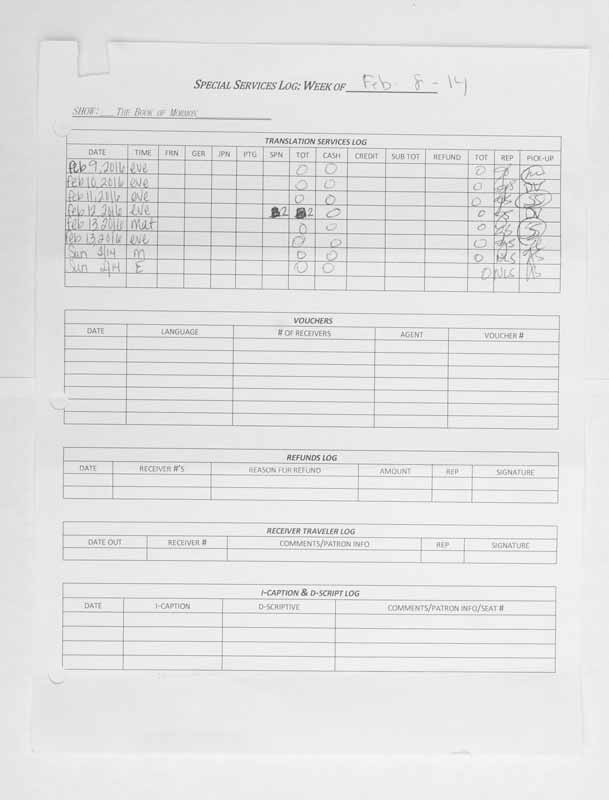 SPECIAL SERVICES LOG: WEEK OF Feb. 8 - 14
SHOW: THE BOOK OF MORMON
TRANSLATION SERVICES LOG
DATE TIME FRN GER JPN PTG SPN TOT CASH CREDIT SUB TOT REFUND TOT REP PICK-UP
Feb 9, 2016 eve 0 0 0
Feb 10, 2016 eve 0 0 0
Feb 11, 2016 eve 0 0 0 SS
Feb 12, 2016 eve 2 2 0 0 DV
Feb 13 2016 Mat 0 0 0
Feb 13, 2016 eve 0 0 0
Sun 2/14 M 0 0 0 NLS
Sun 2/14 E 0 0 0 NLS
VOUCHERS
DATE LANGUAGE # OF RECEIVERS AGENT VOUCHER #
REFUNDS LOG
DATE RECEIVER #'S REASON FOR REFUND AMOUNT REP SIGNATURE
RECEIVER TRAVELER LOG
DATE OUT RECEIVER # COMMENTS/PATRON INFO REP SIGNATURE
I-CAPTION & D-SCRIPT LOG
DATE I-CAPTION D-SCRIPTIVE COMMENTS/PATRON INFO/SEAT #